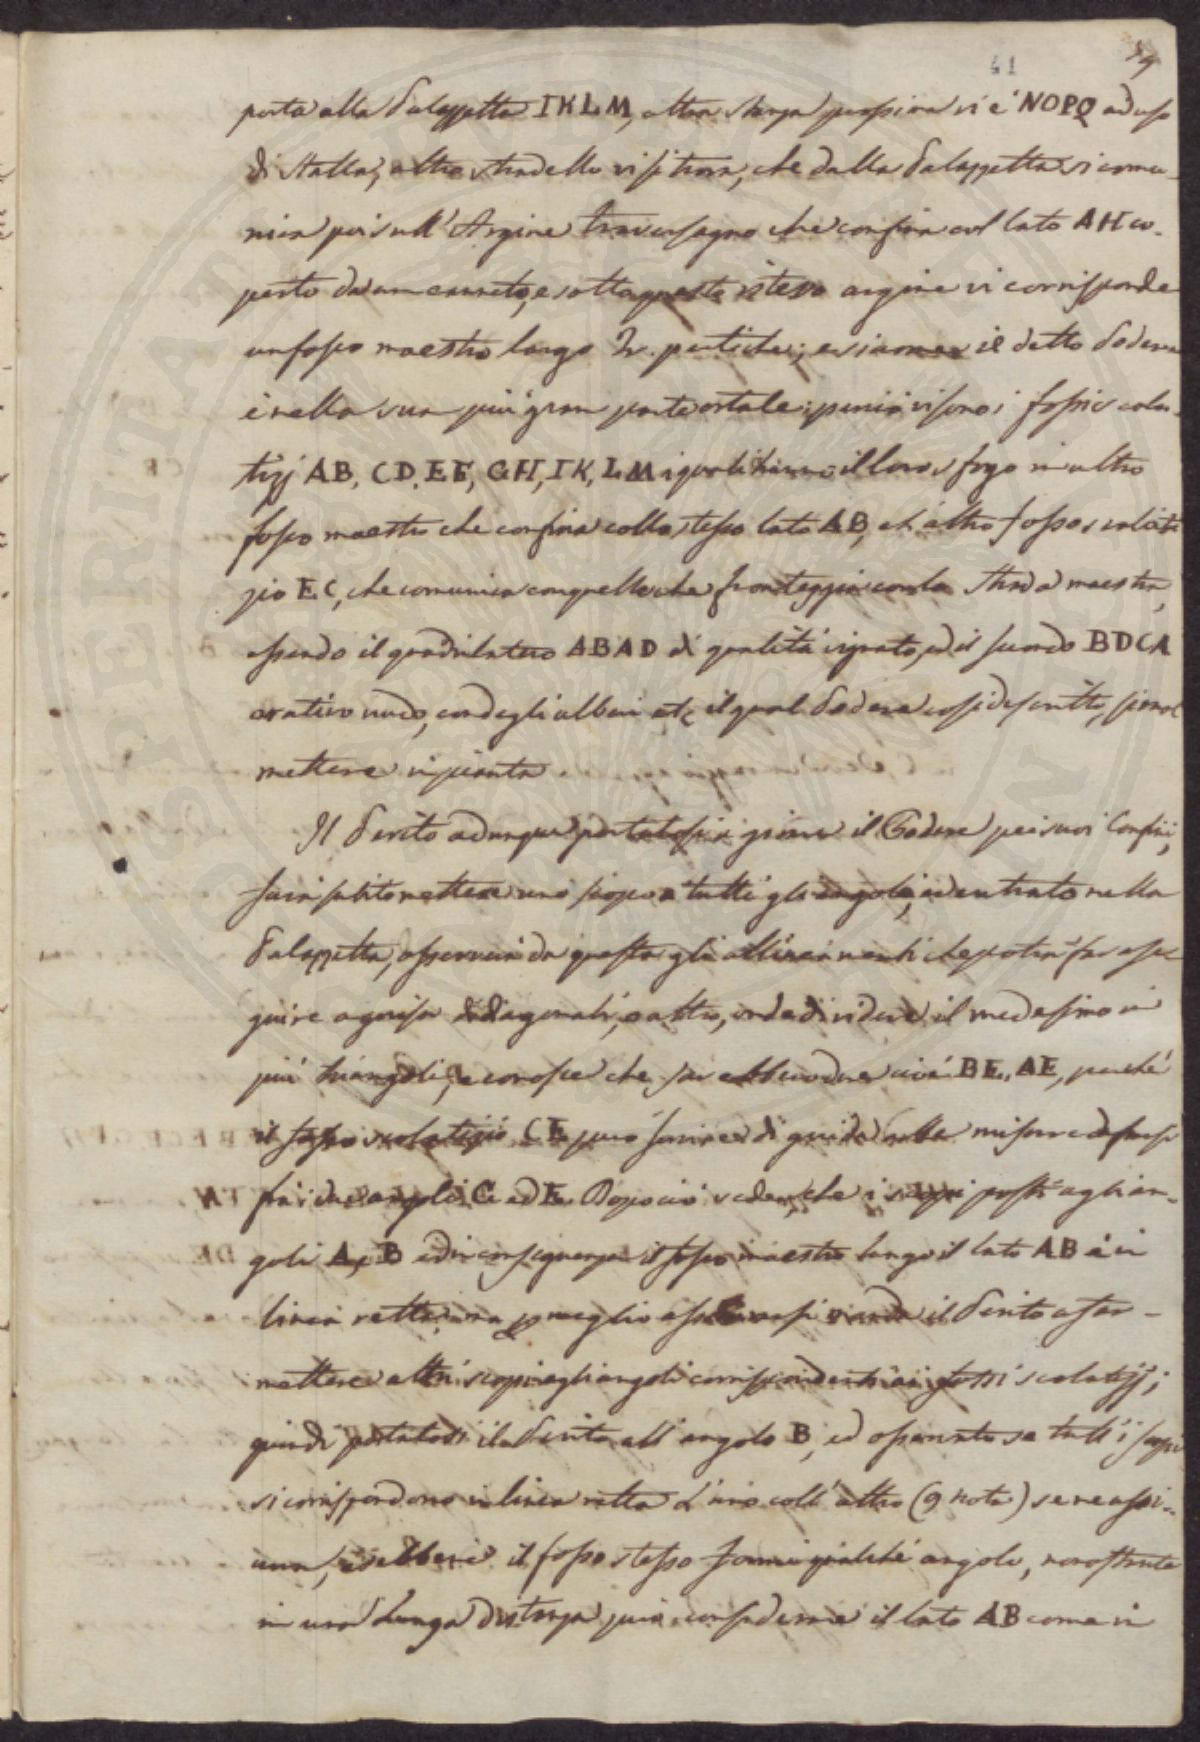 41 59
porta alla Palazzetta IKLM, altra stanza prossima vi è NOPQ ad uso
di stalla, altro stradello vi si trova, che dalla Palazzetta si comu-
nica poi sull'Argine traversagno che confina col lato AH co-
perto da un canneto, e sotto questo istesso argine vi corrisponde
un fosso maestro largo 2. pertiche; e siccome il detto Podere
è nella sua più gran parte ortale; perciò vi sono i fossi scola-
tizj AB, CD, EF, GH, IK, LM i quali hanno il loro sfogo in altro
fosso maestro che confina collo stesso lato AB, ed altro fosso scolati-
zio EC, che comunica con quello che fronteggia con la strada maestra,
essendo il quadrilatero ABAD di qualità vignato, ed il secondo BDCA
orativo nudo, con degli alberi etc. il qual Podere così descritto, si vuol
mettere in pianta.
Il Perito adunque portatosi a girare il Podere pei suoi Confini,
farà subito mettere uno scopo a tutti gli angoli, ed entrato nella
Palazzetta, osserverà da questa gli allineamenti che potrà far ese-
guire a guisa di diagonali, o altro, onde dividere il medesimo in
più triangoli, e conosce che sarebbero due cioè BE, AE, perché
il fosso scolatizio CE può servire di guida nelle misure da farsi
fra i due angoli C ed E. Dopo ciò vede, che i scopi posti agli an-
goli A, B ed in conseguenza il fosso maestro lungo il lato AB è in
linea retta, ma per meglio assicurarsi manda il Perito a far
mettere altri scopi agli angoli corrispondenti ai fossi scolatizj;
quindi portatosi il Perito all'angolo B, ed osservato se tutt'i scopi
si corrispondono in linea retta l'uno coll'altro (9 nota) se ne assi-
cura, e sebbene il fosso stesso formi qualche angolo, nonostante
in una lunga distanza può considerare il lato AB come in